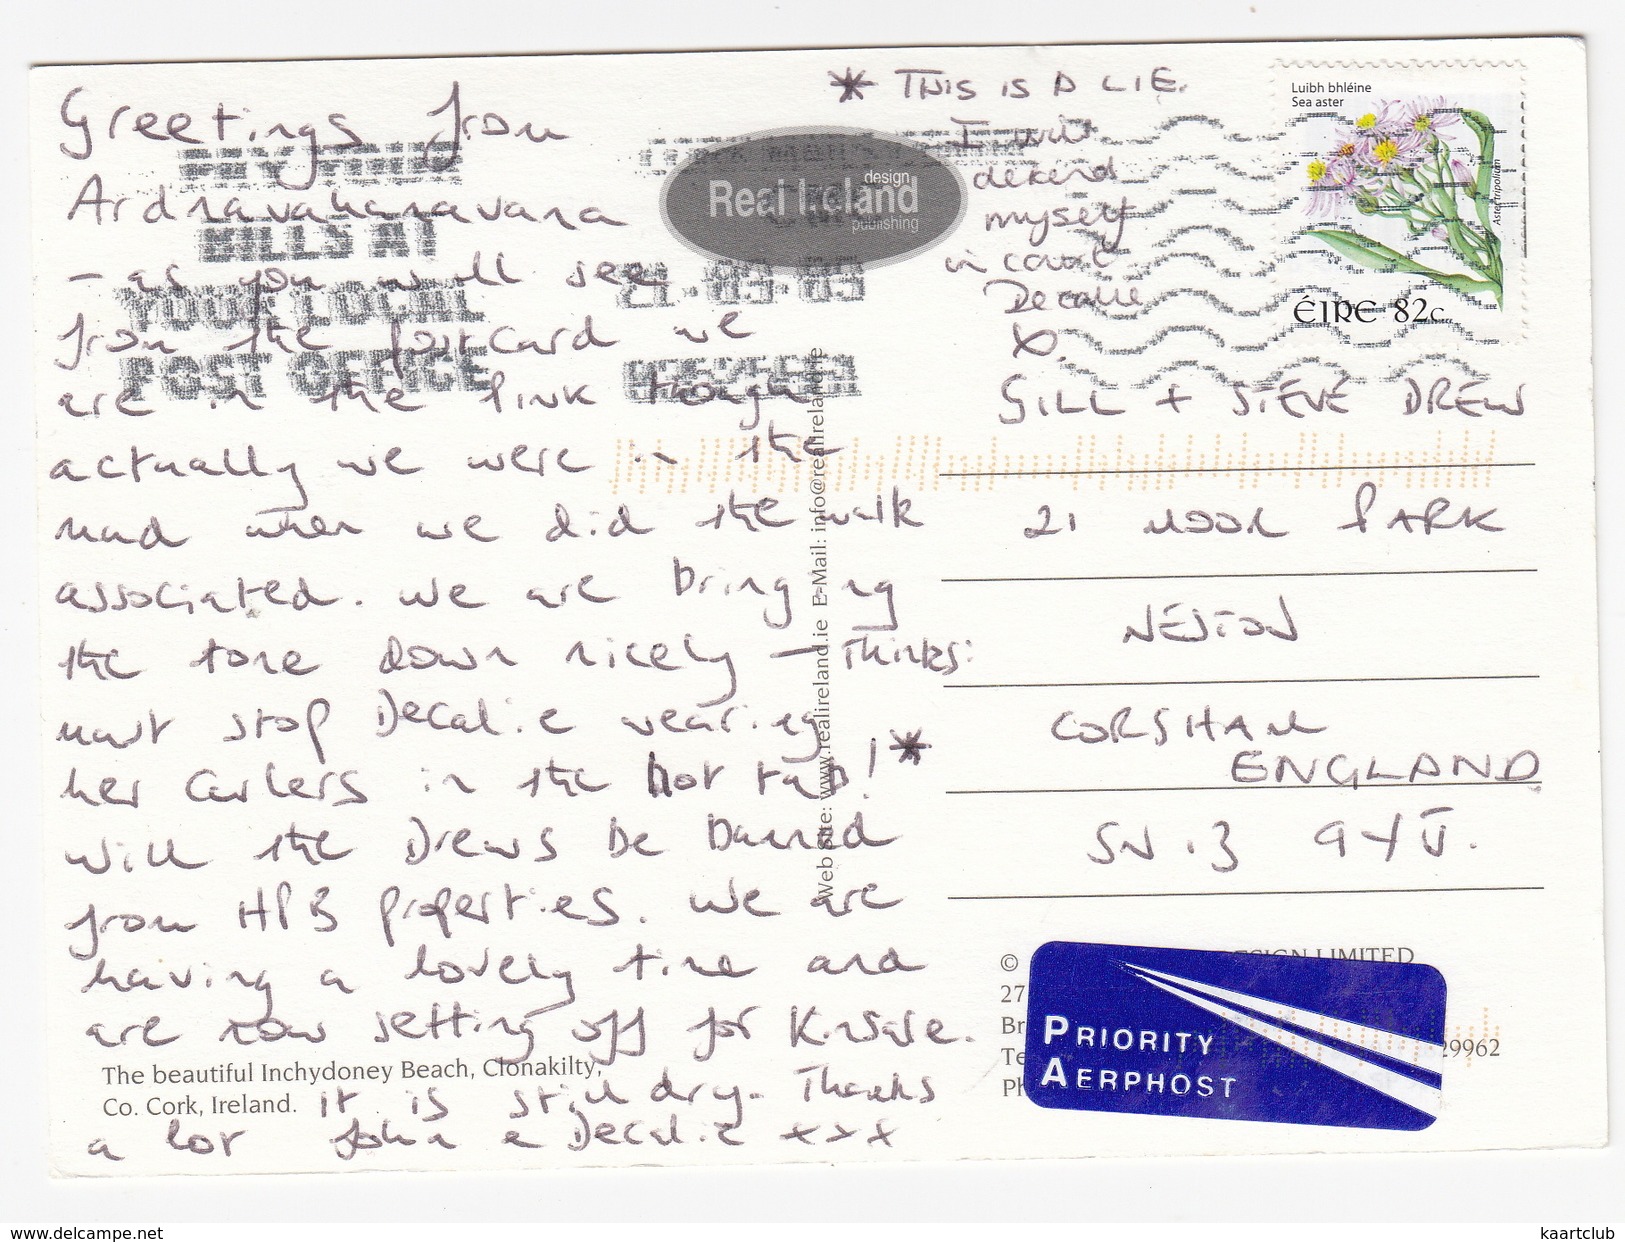 Greetings from
Ardnavahanavana
- as you will see
from the postcard we
are in the pink though
actually we were in the
mud when we did the walk
associated. We are bringing
the tone down nicely - Thinks:
must stop Decalie wearing
her curlers in the hot tub! *
Will the Drews be banned
from HPB properties. We are
having a lovely time and
are now setting off for Kinsale.
It is still dry. Thanks
a lot John & Decalie xxx
The beautiful Inchydoney Beach, Clonakilty,
Co. Cork, Ireland.
PAY YOUR
BILLS AT
YOUR LOCAL
POST OFFICE
Real Ireland
design
publishing
Web site: www.realireland.ie E-Mail: info@realireland.ie
* THIS IS A LIE.
I will
defend
myself
in court
Decalie
X.
Luibh bhléine
Sea aster
Aster tripolium
ÉIRE 82c
GILL + STEVE DREW
21 MOOR PARK
NESTON
CORSHAM
ENGLAND
SN13 9YU.
©
DESIGN LIMITED
27
Br
Te
29962
Ph
PRIORITY
AERPHOST
delcampe.net
kaartclub